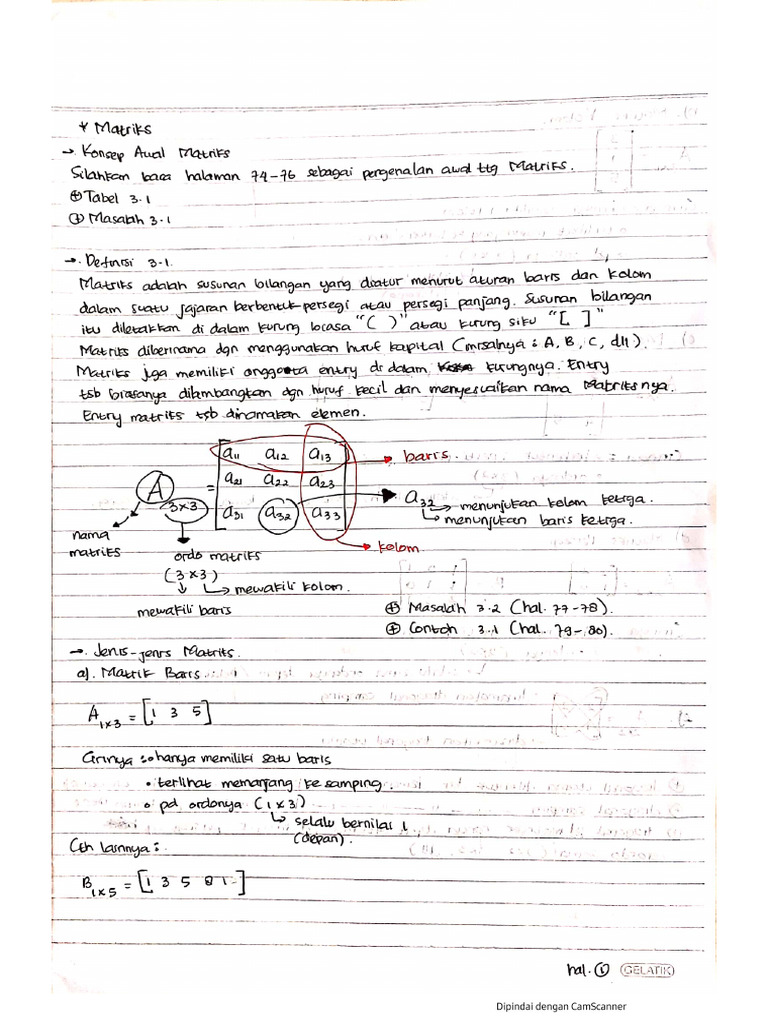 * Matriks
→ Konsep Awal Matriks
Silahkan baca halaman 74-76 sebagai pengenalan awal ttg Matriks.
⊕ Tabel 3.1
⊕ Masalah 3.1
→ Definisi 3.1.
Matriks adalah susunan bilangan yang diatur menurut aturan baris dan kolom
dalam suatu jajaran berbentuk persegi atau persegi panjang. Susunan bilangan
itu diletakkan di dalam kurung biasa "( )" atau kurung siku "[ ]"
Matriks diberinama dgn menggunakan huruf kapital (misalnya : A, B, C, dll).
Matriks jga memiliki anggota entry di dalam kurungnya. Entry
tsb biasanya dilambangkan dgn huruf kecil dan menyesuaikan nama Matriksnya.
Entry matriks tsb dinamakan elemen.
a₁₁ a₁₂ a₁₃ → baris.
A₃ₓ₃ = a₂₁ a₂₂ a₂₃
a₃₁ a₃₂ a₃₃
→ a₃₂ → menunjukan kolom ketiga.
↳ menunjukan baris ketiga.
→ kolom
nama
matriks
ordo matriks
(3 × 3)
↳ mewakili kolom.
mewakili baris
⊕ Masalah 3.2 (hal. 77-78).
⊕ Contoh 3.1 (hal. 79-80).
→ Jenis-jenis Matriks.
a). Matrik Baris
A₁ₓ₃ = [1 3 5]
Cirinya : • hanya memiliki satu baris
• terlihat memanjang ke samping.
• pd ordonya (1 × 3)
↳ selalu bernilai 1
(depan).
Cth lainnya :
B₁ₓ₅ = [1 3 5 0 1]
hal. ①
GELATIK
Dipindai dengan CamScanner